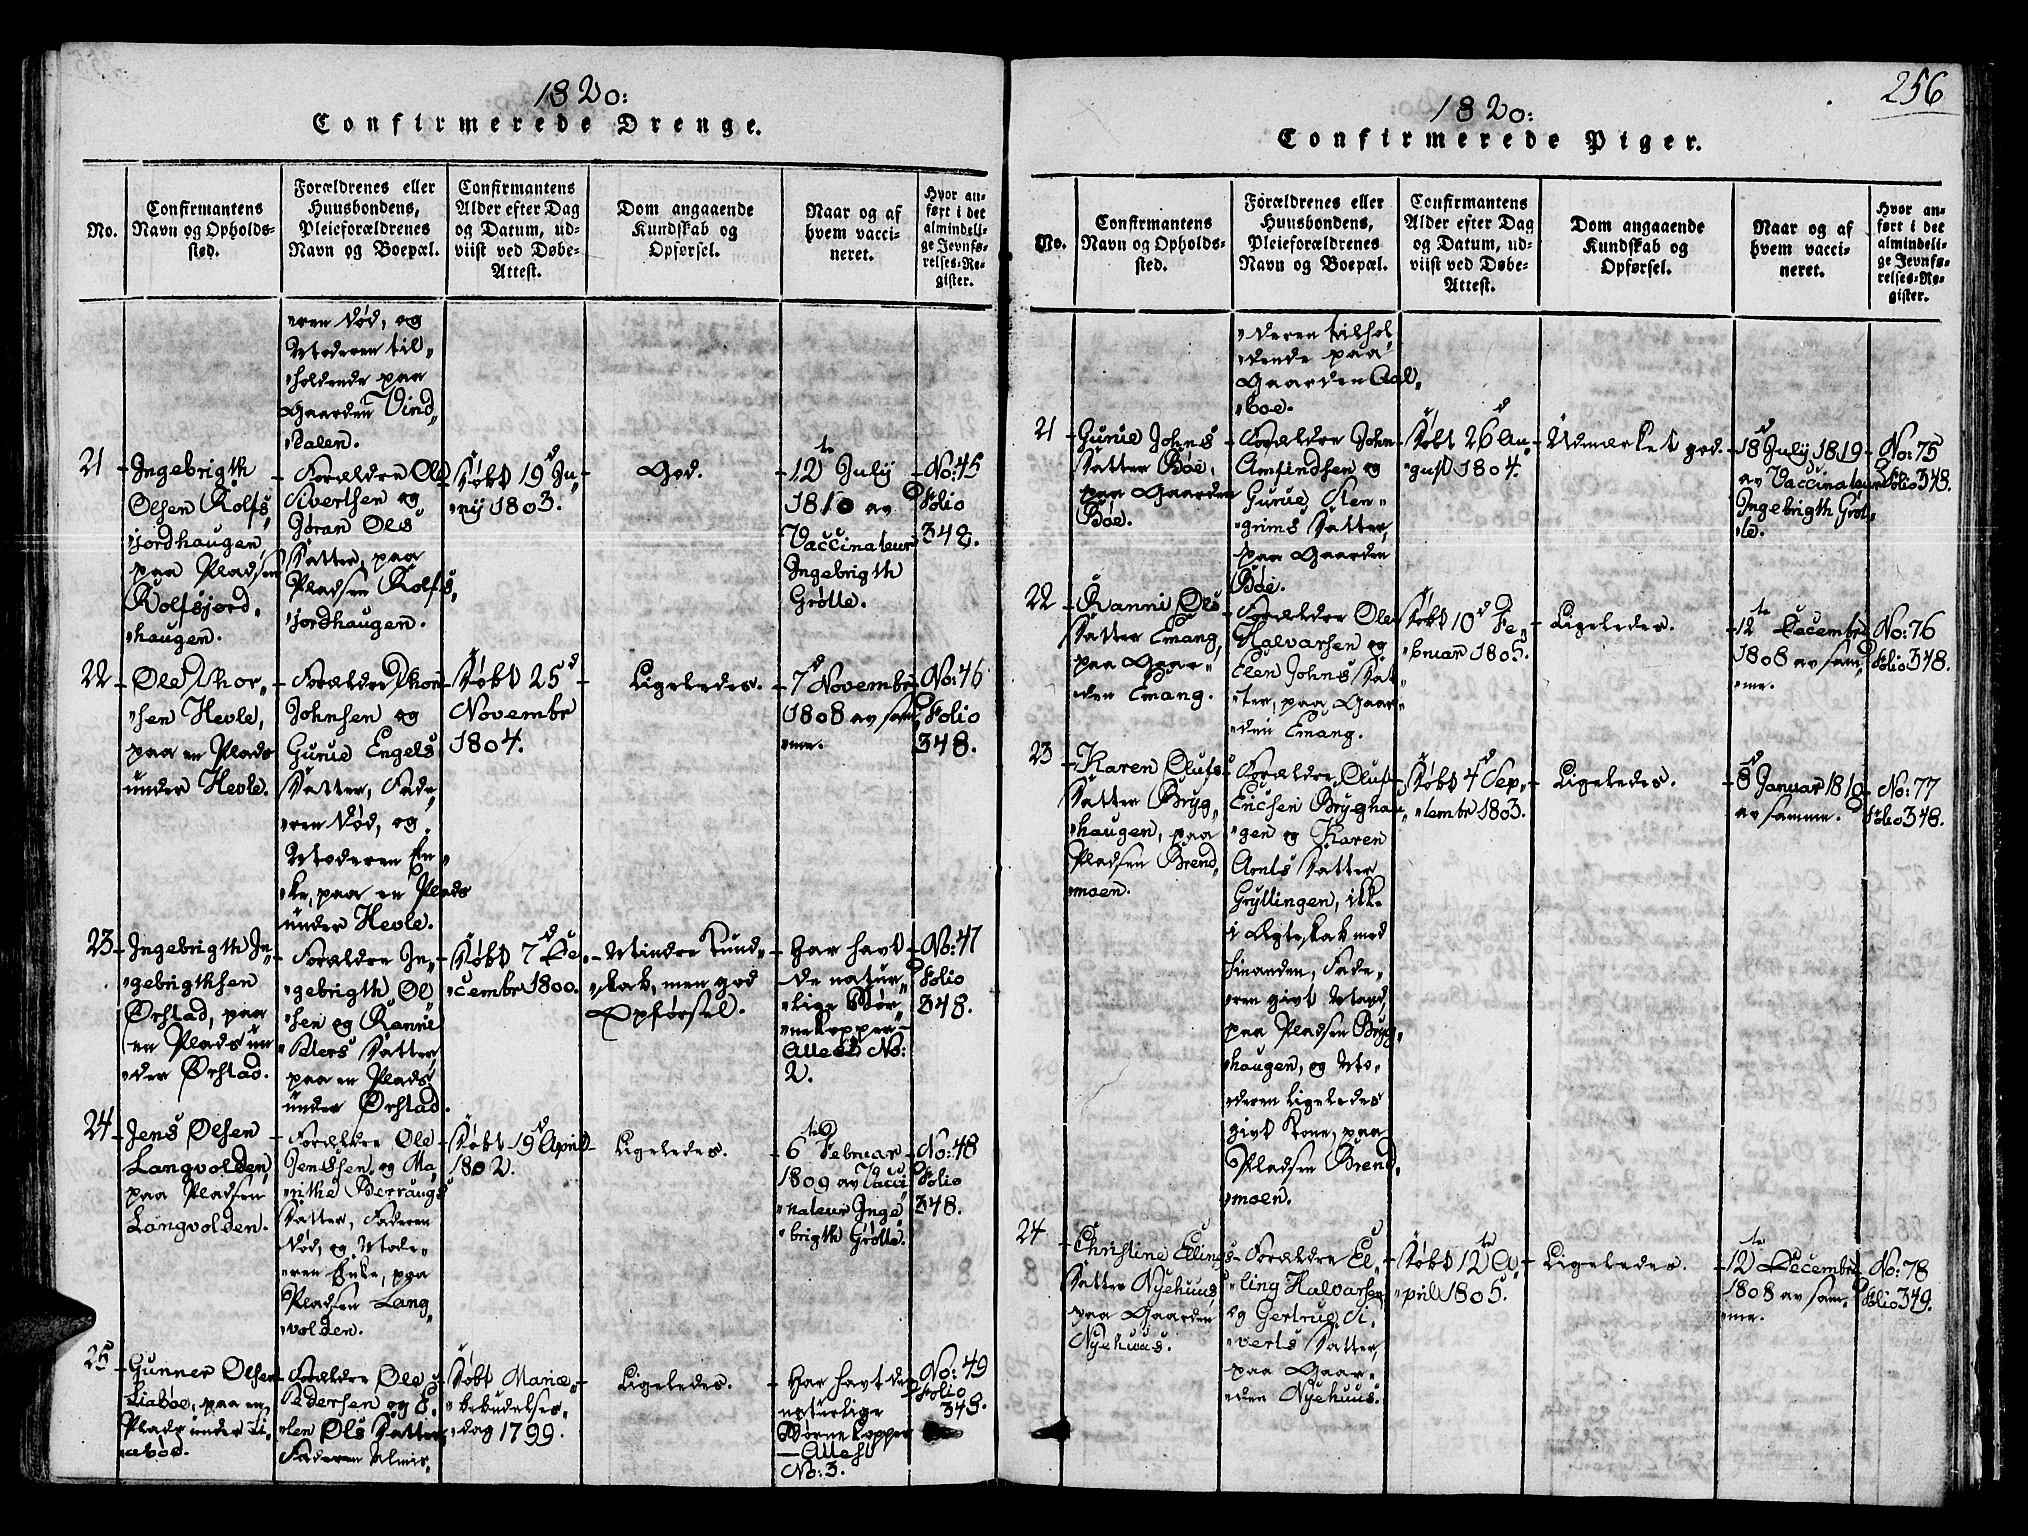 1820:
Confirmerede Drenge.
No.
Confirmantens
Navn og Opholds-
sted.
Forældrenes eller
Huusbondens,
Pleieforældrenes
Navn og Boepæl.
Confirmantens
Alder efter Dag
og Datum, ud-
viist ved Døbe-
Attest.
Dom angaaende
Kundskab og
Opførsel.
Naar og af
hvem vacci-
neret.
Hvor an-
ført i det
almindeli-
ge Jevnfø-
relses-Re-
gister.
"ren død, og
Moderen til"
"holdende paa
Gaarden Vind"
"dalen.
21
Ingebrigth
Olsen Rolfs"
"jordhaugen
paa Pladsen
Rolfsjord"
"haugen.
Forældre Ole
Sivertsen og
Jøran Ols
Datter, paa
Pladsen Rolfs"
"jordhaugen.
Døbt 19d Ju"
"nij 1803.
God.
12te July
1810 av
Vaccinateur
Ingebrigth
Grøtte.
No: 45
Folio
348.
22
Ole Thor"
"sen Hevle,
paa en Plads
under Hevle.
Forældre Thor
Johnsen og
Gurue Engels
Datter, Fade"
"ren død, og
Moderen En"
"ke, paa en Plads
under Hevle.
Døbt 25d
Novembr
1804.
Ligeledes.
7d Novembr
1808 av sam"
"me.
No: 46
Folio
348.
23
Ingebrigth In"
"gebrigthsen
Ørstad, paa
en Plads un"
"der Ørstad.
Forældre In"
"gebrigth Ol"
"sen og Rannie
Peders Datter
paa en Plads
under Ørstad.
Døbt 7d De"
"cembr 1800.
Mindre Kund"
"skab, men god
Opførsel.
Har havt
de natur"
"lige Bør"
"nekopper
Attest No:
2.
No: 47
Folio
348.
24
Jens Olsen
Langvolden
paa Pladsen
Langvolden.
Forældre Ole
Jenssen og Ma"
"rithe Berraugs
Datter, Faderen
død, og Mode"
"ren Enke, paa
Pladsen Lang"
"volden.
Døbt 19d April
1802.
Ligeledes.
6te Februar
1809 av Vacci"
"nateur Inge"
"brigth Grøtte.
No: 48
Folio
348.
25
Gunner Olsen
Liabøe, paa en
Plads under Li"
"abøe.
Forældre Ole
Pedersen og E"
"len Ols Datter,
Faderen Almis"
Døbt Mariæ"
"bebudelses"
"dag 1799.
Ligeledes.
Har havt de
naturlige
Børnekopper
—Attest
No: 3.
No: 49
Folio
348.
256
1820:
Confirmerede Piger.
No.
Confirmantens
Navn og Opholds-
sted.
Forældrenes eller
Huusbondens,
Pleieforældrenes
Navn og Boepæl.
Confirmantens
Alder efter Dag
og Datum, ud-
viist ved Døbe-
Attest.
Dom angaaende
Kundskab og
Opførsel.
Naar og af
hvem vacci-
neret.
Hvor an-
ført i det
almindeli-
ge Jevnfø-
relses-Re-
gister.
"deren tilhol"
"dende paa
Gaarden Aal"
"boe.
21
Gurue Johns
Datter Bøe,
paa Gaarden
Bøe.
Forældre John
Amfindsen og
Gurue Sten"
"grims Datter,
paa Gaarden
Bøe.
Døbt 26d Au"
"gust 1804.
Udmærket god.
18d July 1819
av Vaccinateur
Ingebrigth Grøt"
"te.
No: 75
Folio 348.
22
Ranni Ols
Datter Emang,
paa Gaar"
"den Emang.
Forældre Ole
Halvarsen og
Elen Johns Dat"
"ter, paa Gaar"
"den Emang.
Døbt 10d Fe"
"bruar 1805.
Ligeledes.
12te Decembr
1808 av sam"
"me.
No: 76
Folio 348.
23
Karen Olufs
Datter Bryg"
"haugen, paa
Pladsen Brend"
"moen.
Forældre Oluf
Ericsen Bryghau"
"gen og Karen
Arnts Datter
Gryllingen, ikke
i Ægteskab med
hinanden, Fade"
"ren givt Mand,
paa Pladsen Bryg"
"haugen, og Mo"
"deren ligeledes
givt Kone, paa
Pladsen Brend"
"moen.
Døbt 4d Sep"
"tembr 1803.
Ligeledes.
8d Januar 1810
av samme.
No: 77
Folio 348.
24
Christine Ellings
Datter Nyehuus,
paa Gaarden
Nyehuus.
Forældre El"
"ling Halvarsen
og Gertrue Si"
"verts Datter,
paa Gaar"
"den Nyehuus.
Døbt 12te A"
"pril 1805.
Ligeledes.
12te Decembr
1808 av sam"
"me.
No: 78
Folio 349.